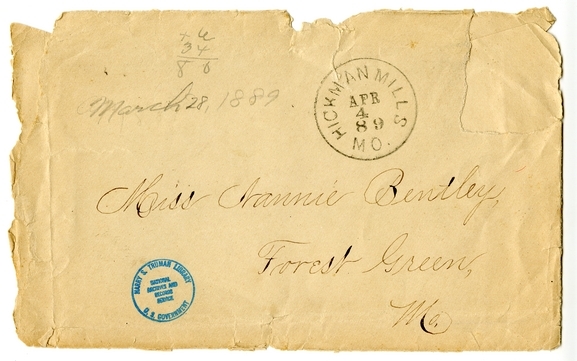 34
March 28, 1889
HICKMAN MILLS
APR
4
89
MO.
Miss Nannie Bentley,
Forest Green,
Mo.
HARRY S. TRUMAN LIBRARY
NATIONAL
ARCHIVES AND
RECORDS
SERVICE
U. S. GOVERNMENT